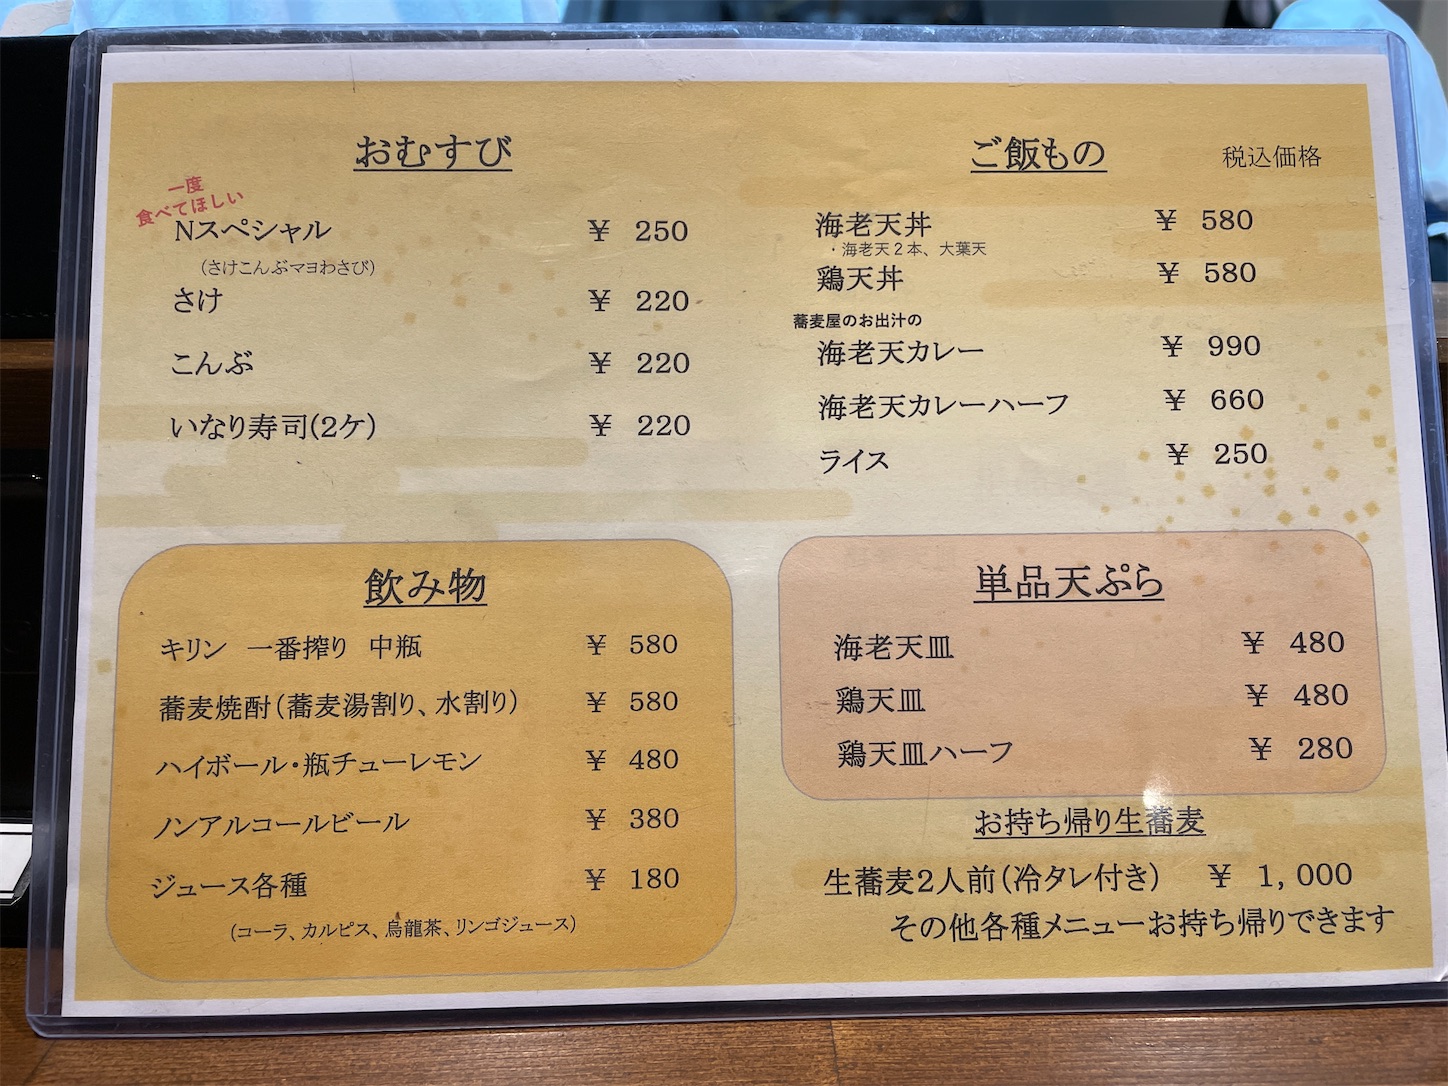 おむすび
一度
食べてほしい
Nスペシャル ¥ 250
(さけこんぶマヨわさび)
さけ ¥ 220
こんぶ ¥ 220
いなり寿司(2ケ) ¥ 220
ご飯もの 税込価格
海老天丼 ¥ 580
・海老天2本、大葉天
鶏天丼 ¥ 580
蕎麦屋のお出汁の
海老天カレー ¥ 990
海老天カレーハーフ ¥ 660
ライス ¥ 250
飲み物
キリン 一番搾り 中瓶 ¥ 580
蕎麦焼酎(蕎麦湯割り、水割り) ¥ 580
ハイボール・瓶チューレモン ¥ 480
ノンアルコールビール ¥ 380
ジュース各種 ¥ 180
(コーラ、カルピス、烏龍茶、リンゴジュース)
単品天ぷら
海老天皿 ¥ 480
鶏天皿 ¥ 480
鶏天皿ハーフ ¥ 280
お持ち帰り生蕎麦
生蕎麦2人前(冷タレ付き) ¥ 1,000
その他各種メニューお持ち帰りできます